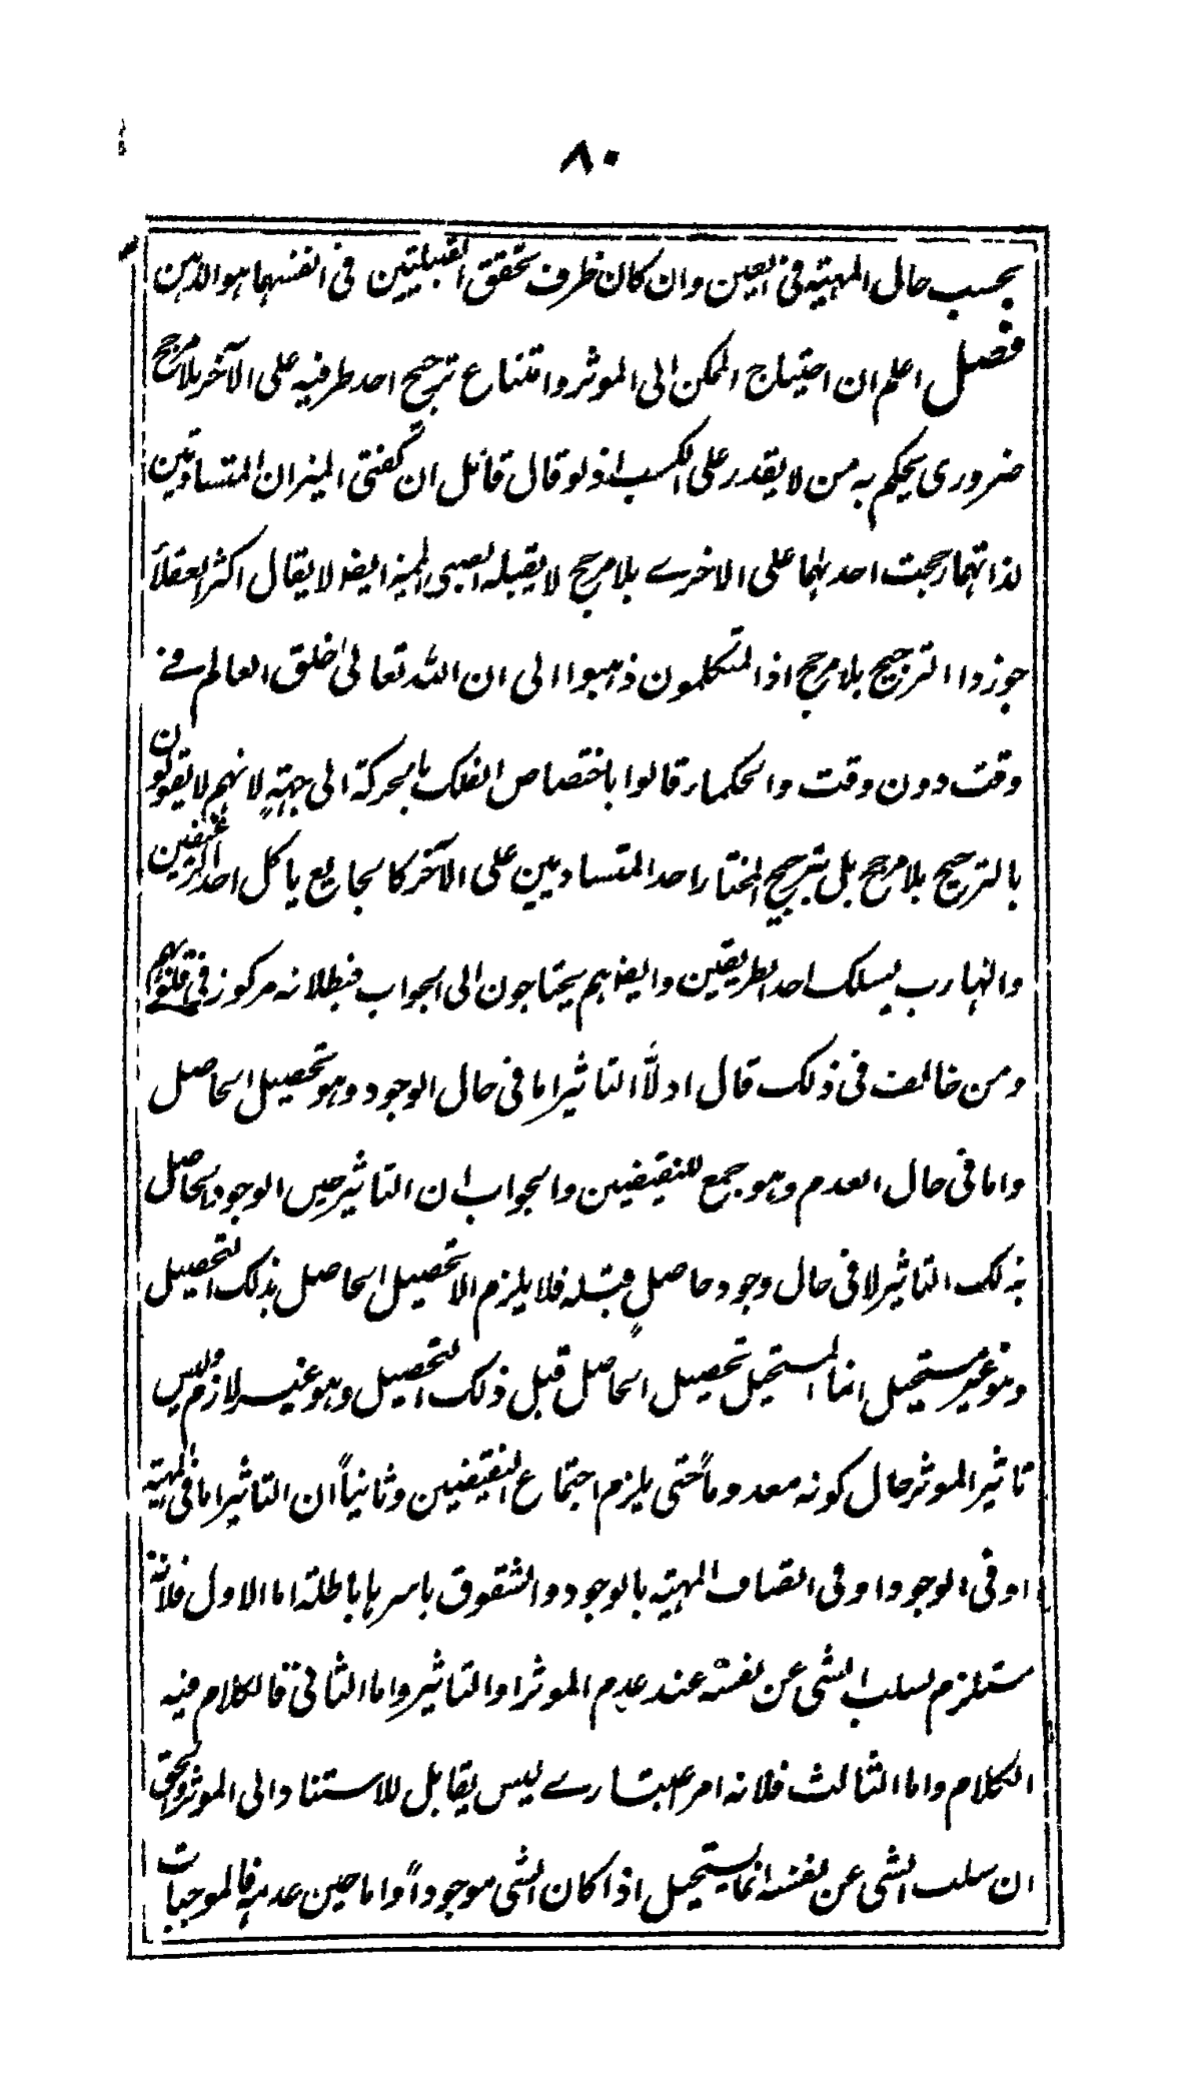 ٨٠
بحسب حال المهية فى العين وان كان ظرف تحقق القبليتين فى انفسهما هو الذهن
فصل اعلم ان احتياج الممكن الى الموثر وامتناع ترجيح احد طرفيه على الآخر بلا مرجح
ضرورى يحكم به من لا يقدر على الكسب اذ لو قال قائل ان كفتى الميزان المتساويتين
لذاتهما رجحت احدٰهما على الاخرے بلا مرجح لا يقبله الصبى المميز ايضا لا يقال اكثر العقلاء
جوزوا الترجيح بلا مرجح اذ المتكلمون ذهبوا الى ان اللّٰه تعالىٰ خلق العالم فے
وقت دون وقت والحكماء قالوا باختصاص الفلك بالحركة الى جهةٍ لانهم لا يقولون
بالترجيح بلا مرجح بل بترجيح المختار احد المتساويين على الآخر كالجايع ياكل احد الرغيفين
والهارب يسلك احد الطريقين وايضا هم يحتاجون الى الجواب فبطلانه مركوز فى قلوبهم
ومن خالف فى ذلك قال اولاً التاثير اما فى حال الوجود وهو تحصيل الحاصل
واما فى حال العدم وهو جمع للنقيضين والجواب ان التاثير حين الوجود الحاصل
بذلك التاثير لا فى حال وجود حاصلٍ قبله فلا يلزم الا تحصيل الحاصل بذلك التحصيل
وهو غير مستحيل انما المستحيل تحصيل الحاصل قبل ذلك التحصيل وهو غير لازم وليس
تاثير الموثر حال كونه معدوماً حتى يلزم اجتماع النقيضين وثانياً ان التاثير اما فى المهية
او فى الوجود او فى اتصاف المهية بالوجود والشقوق باسرها باطلة اما الاول فلانه
مستلزم لسلب الشى عن نفسه عند عدم الموثر او التاثير واما الثانى فالكلام فيه
الكلام واما الثالث فلانه امر اعتبارے ليس يقابل للاستناد الى الموثر والحق
ان سلب الشى عن نفسه انما يستحيل اذا كان الشى موجوداً واما حين عدمه فالموجبات